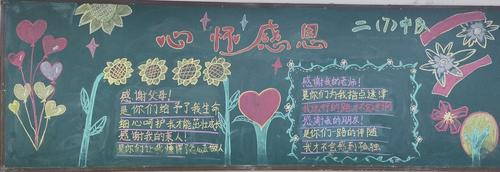 心怀感恩
二(7)中队
感谢父母!
是你们给予了我生命
细心呵护我才能茁壮成长
感谢我的家人!
是你们让我懂得了
感谢我的老师!
是你们为我指点迷津
我远行的路才不会迷惘
感谢我的朋友!
是你们一路的伴随
我才不会感到孤独